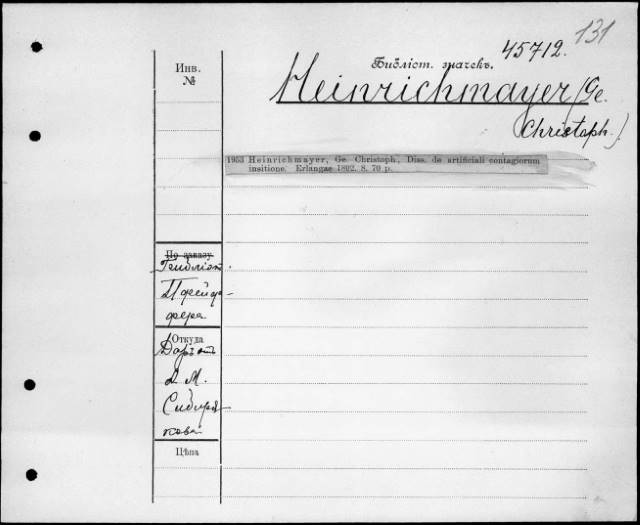 131
45712.
Инв.
№
Библіот. значекъ.
Heinrichmayer, (Ge.
Christoph.)
1953 Heinrichmayer, Ge. Christoph., Diss. de artificiali contagiorum
insitione. Erlangae 1802. 8. 70 p.
По заказу
Пфейф-
фера
Откуда
Даръ отъ
А. М.
Сибиря-
кова
Цѣна